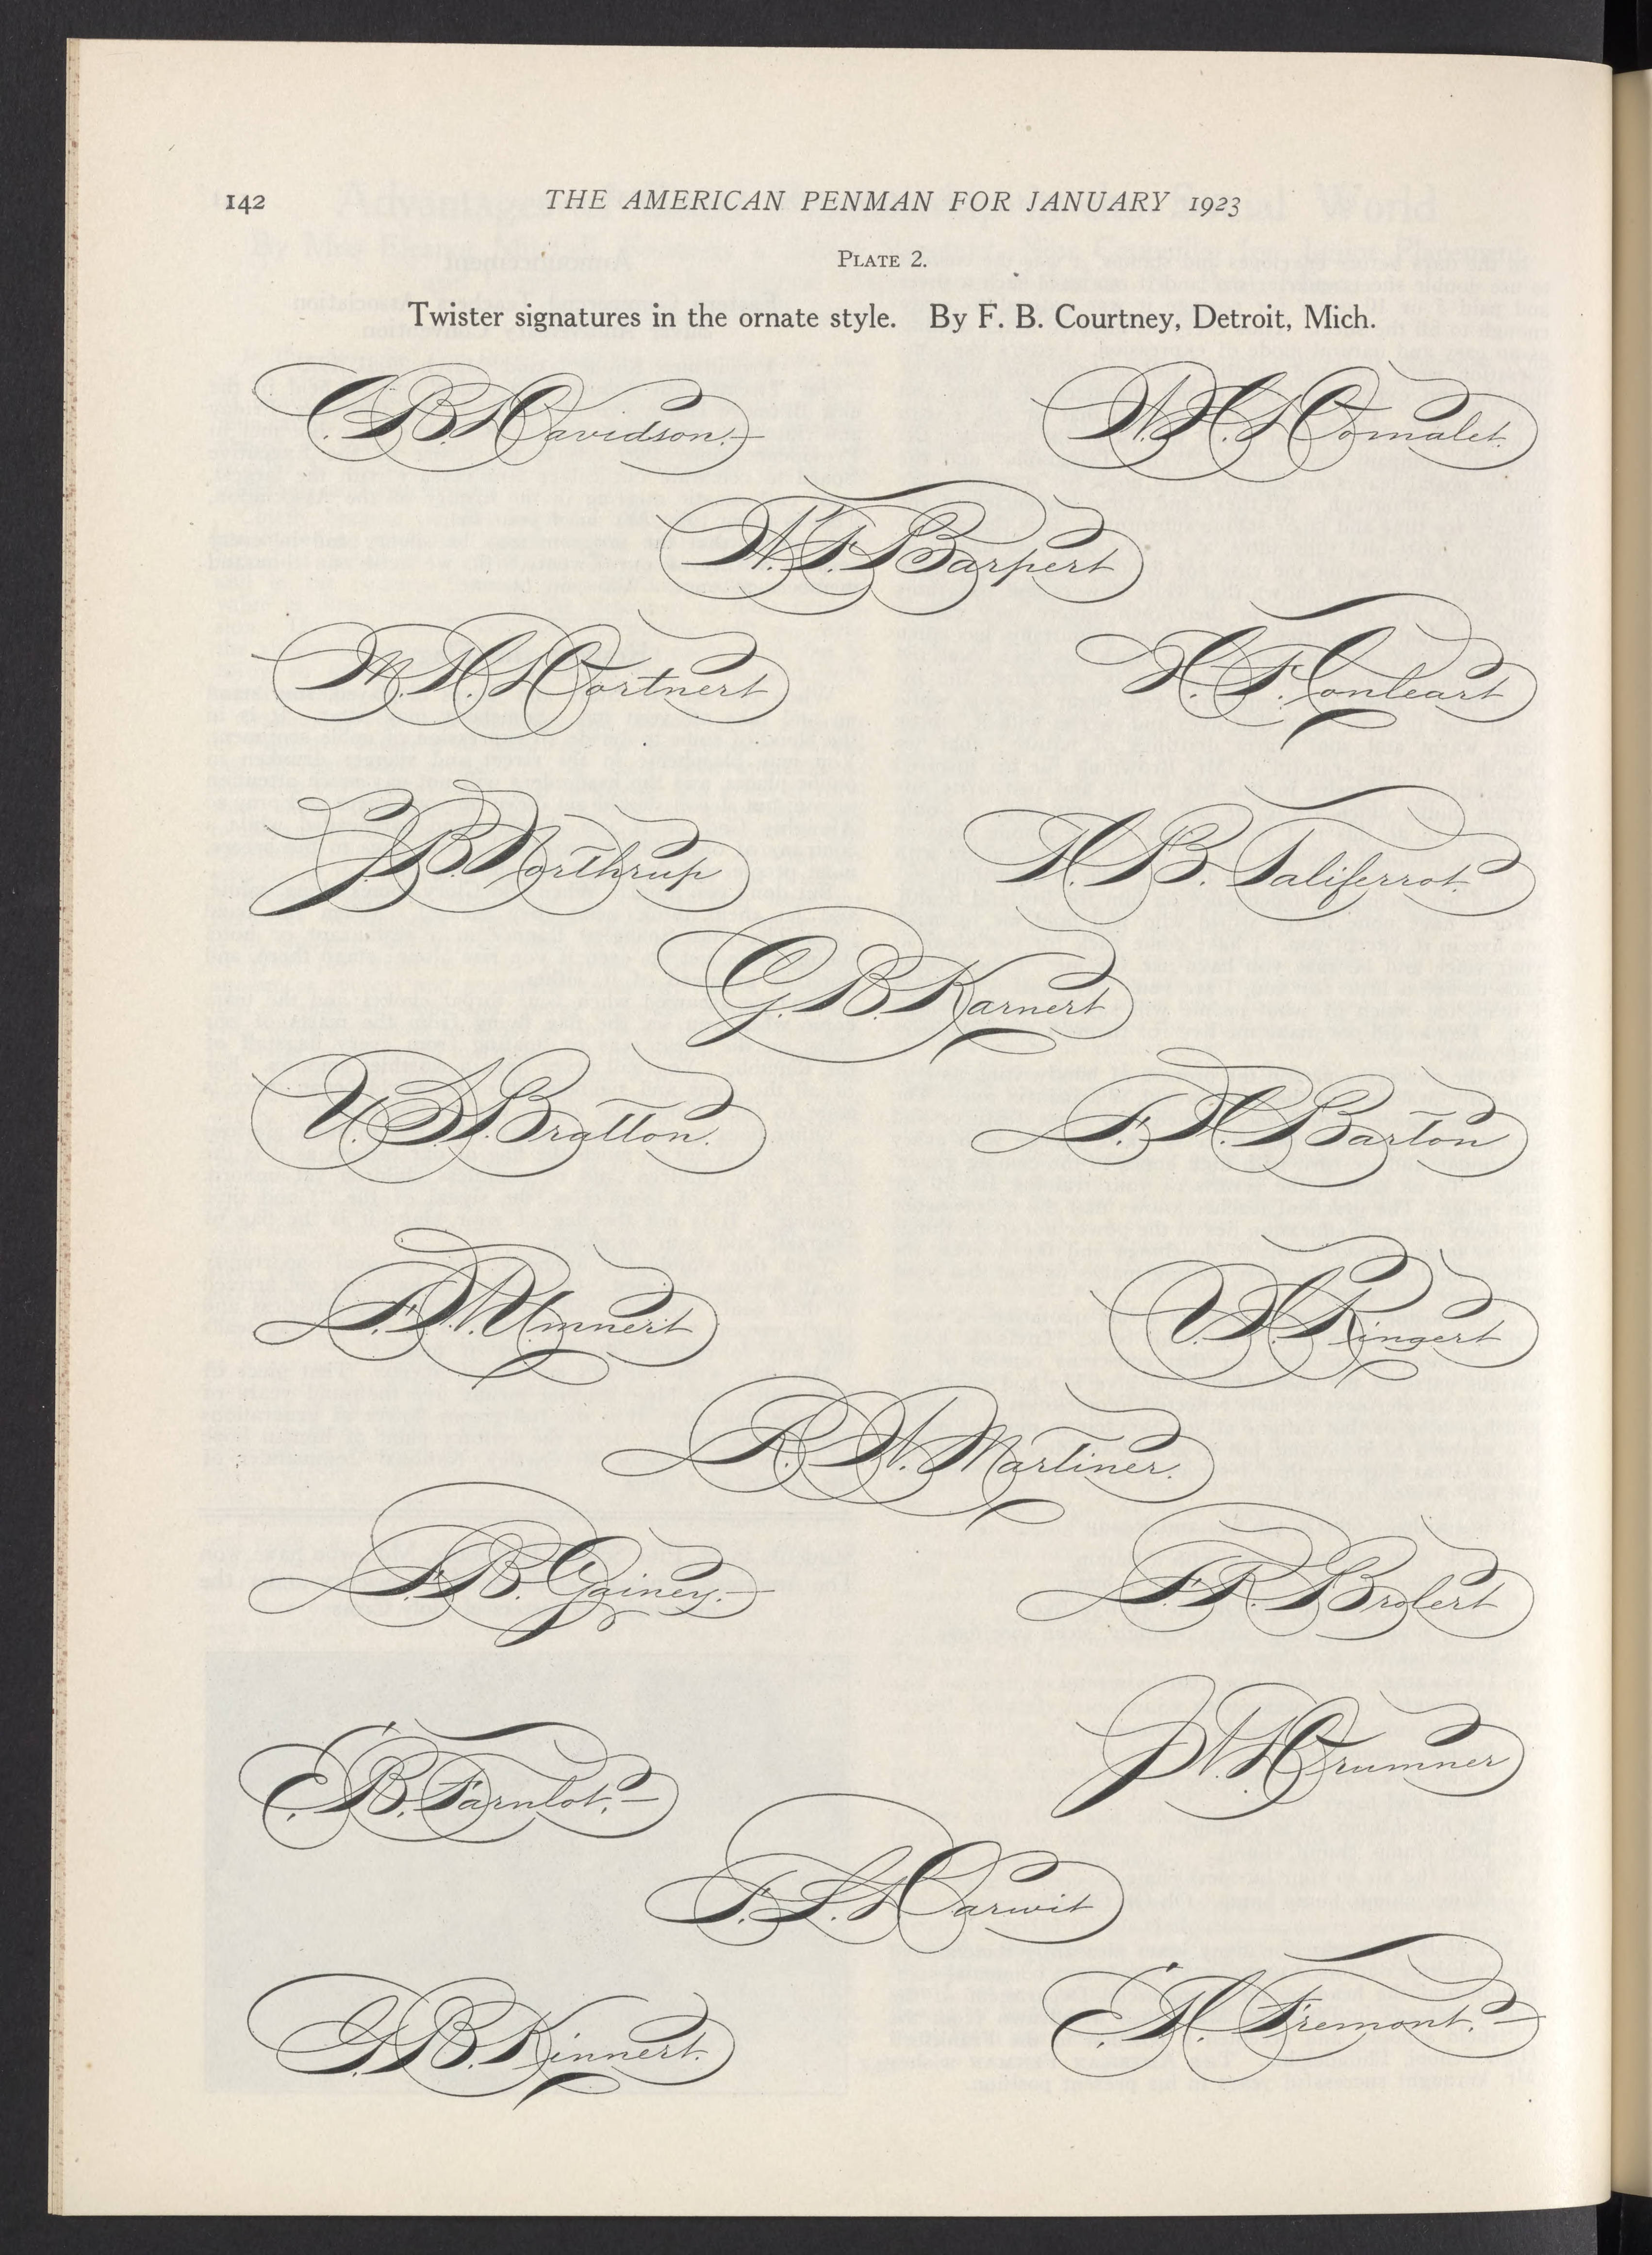 142
THE AMERICAN PENMAN FOR JANUARY 1923
PLATE 2.
Twister signatures in the ornate style. By F. B. Courtney, Detroit, Mich.
C. B. Davidson.
W. H. Comalet.
W. F. Barpert
M. H. Cortnert
H. F. Conleart
J. B. Northrup
H. B. Taliferrot.
G. B. Karnert
U. S. Bratton.
F. H. Barton
F. W. Ummert
V. S. Ringert
R. W. Martiner.
F. B. Gainey.
F. R. Brolert
E. B. Farnlot.
J. W. Crumner
T. L. Carwit
G. B. Kinnert.
E. H. Fremont.